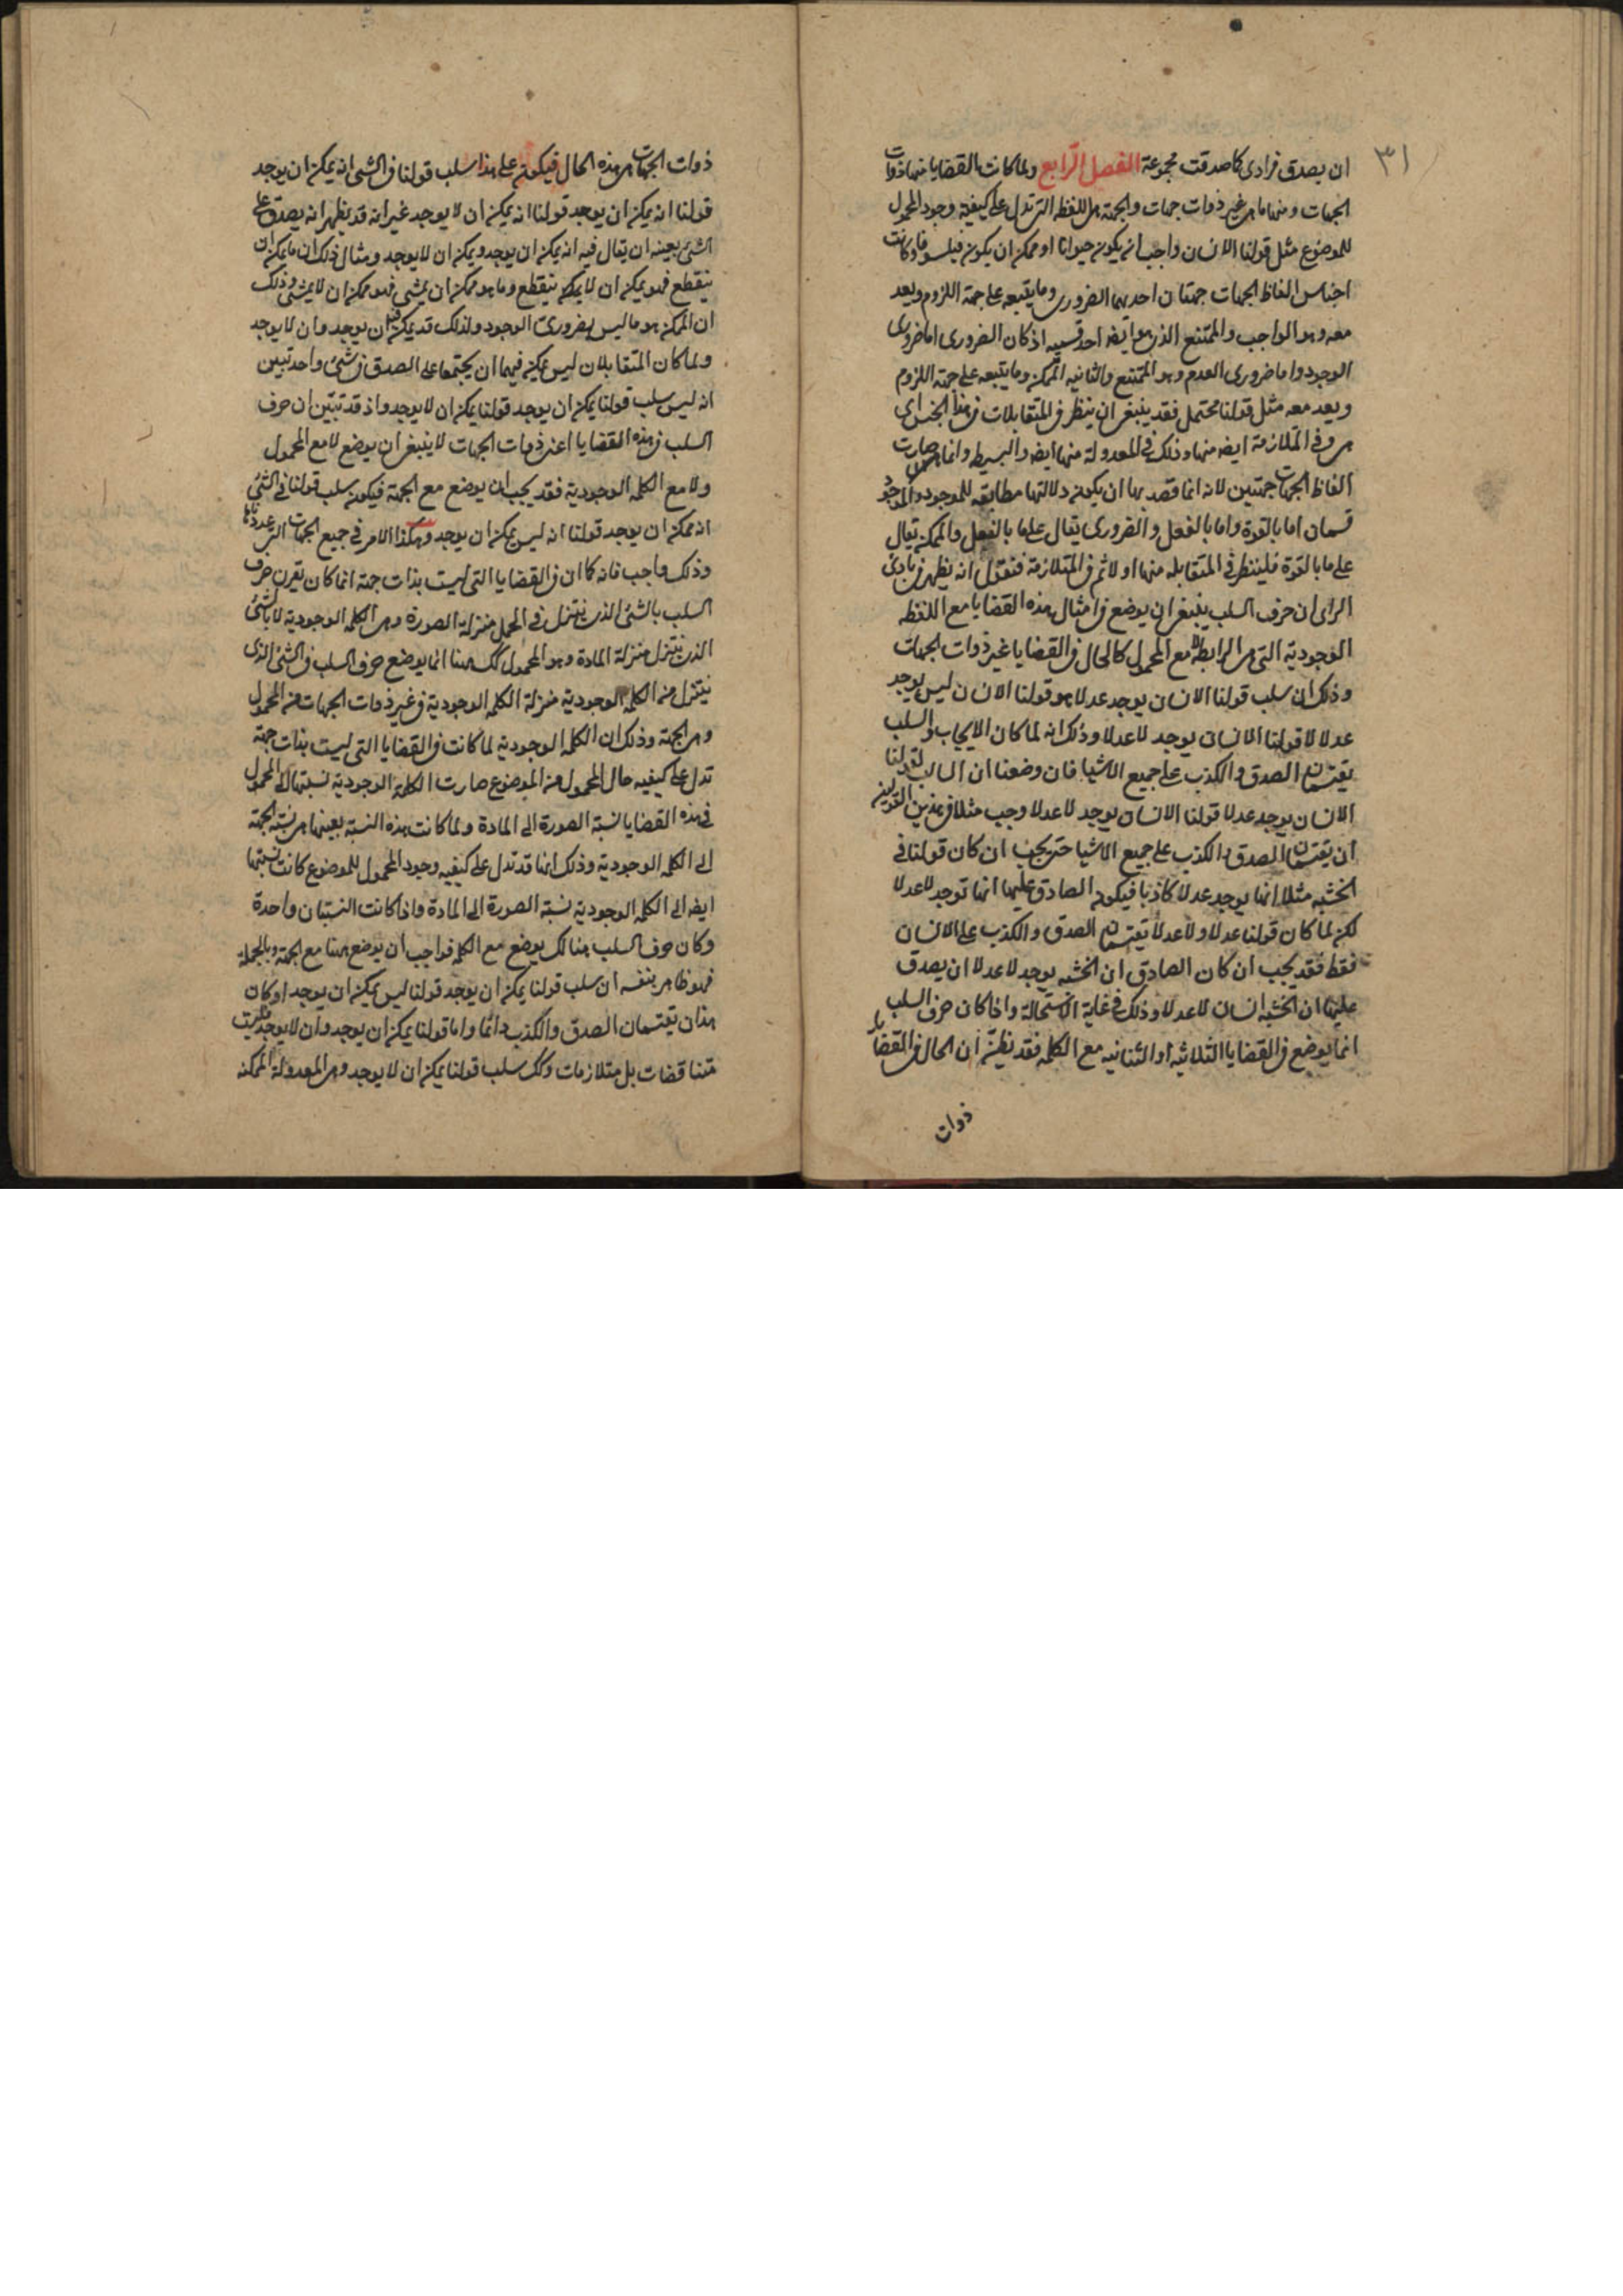 ٣١
ان يصدق فرادى كما صدقت مجموعة الفصل الرابع ولما كانت القضايا منها ذوات
الجهات ومنها ما هى غير ذوات جهات والجهة هى اللفظه التى تدل على كيفية وجود المحمول
للموضوع مثل قولنا الانسان واجب ان يكون حيوانا او ممكن ان يكون فيلسوفا وكانت
اجناس الفاظ الجهات جهتان احديهما الضرورى وما يتبعه على جهة اللزوم ويعد
معه وهو الواجب والممتنع الذى هو ايضه احد قسميه اذ كان الضرورى اما ضرورى
الوجود واما ضرورى العدم وهو الممتنع والثانيه الممكن وما يتبعه على جهة اللزوم
ويعد معه مثل قولنا محتمل فقد ينبغى ان ينظر فى المتقابلات فى هذا الجنس اى
هى وفى المتلازمة ايضه منها وذلك فى المعدولة منها ايضه والبسيطه وانما صارت
الفاظ الجهات جهتين لانه انما قصد بها ان يكون دلالتها مطابقه للموجود والموجود
قسمان اما بالقوة واما بالفعل والضرورى يقال على ما بالفعل والممكن يقال
على ما بالقوة فلينظر فى المتقابله منها اولا ثم فى المتلازمة فنقول انه يظهر فى بادى
الراى ان حرف السلب ينبغى ان يوضع فى امثال هذه القضايا مع اللفظه
الوجودية التى هى الرابطه لا مع المحمول كالحال فى القضايا غير ذوات الجهات
وذلك ان سلب قولنا الانسان يوجد عدلا هو قولنا الانسان ليس يوجد
عدلا لا قولنا الانسان يوجد لا عدلا وذلك انه لما كان الايجاب والسلب
يقتسمان الصدق والكذب على جميع الاشيا فان وضعنا ان السالب لقولنا
الانسان يوجد عدلا قولنا الانسان يوجد لا عدلا وجب مثلا فى هذين القولين
ان يقتسمان الصدق والكذب على جميع الاشيا حتى يجب ان كان قولنا فى
الخشبه مثلا انها يوجد عدلا كاذبا فيكون الصادق عليها انها توجد لا عدلا
لكن لما كان قولنا عدلا ولا عدلا يقتسمان الصدق والكذب على الانسان
فقط فقد يجب ان كان الصادق ان الخشبه يوجد لا عدلا ان يصدق
عليها ان الخشبه انسان لا عدلا وذلك فى غاية الاستحالة واذا كان حرف السلب
انما يوضع فى القضايا الثلاثيه او الثنائيه مع الكلمه فقد نظن ان الحال فى القضايا
ذوات
ذوات الجهات هى هذه الحال فيكون على هذا سلب قولنا فى الشى انه يمكن ان يوجد
قولنا انه يمكن ان يوجد قولنا انه يمكن ان لا يوجد غير انه قد يظهر انه يصدق على
الشى بعينه ان يقال فيه انه يمكن ان يوجد ويمكن ان لا يوجد ومثال ذلك ان ما يمكن ان
ينقطع فهو يمكن ان لا ينقطع وما هو ممكن ان يمشى فهو ممكن ان لا يمشى وذلك
ان الممكن هو ما ليس بضرورى الوجود ولذلك قد يمكن فيه ان يوجد وان لا يوجد
ولما كان المتقابلان ليس يمكن فيهما ان يجتمعا على الصدق فى شئ واحد تبين
انه ليس سلب قولنا يمكن ان يوجد قولنا يمكن ان لا يوجد واذ قد تبين ان حرف
السلب فى هذه القضايا اعنى ذوات الجهات لا ينبغى ان يوضع لا مع المحمول
ولا مع الكلمه الوجودية فقد يجب ان يوضع مع الجهة فيكون سلب قولنا فى الشئ
انه ممكن ان يوجد قولنا انه ليس يمكن ان يوجد وهكذا الامر فى جميع الجهات التى عددناها
وذلك واجب فانه كما ان فى القضايا التى ليست بذات جهة انما كان يقرن حرف
السلب بالشئ الذى يتنزل فى الحمل منزلة الصورة وهى الكلمه الوجودية لا بالشئ
الذى يتنزل منزلة المادة وهو المحمول كك ههنا انما يوضع حرف السلب فى الشئ الذى
يتنزل من الكلمه الوجودية منزلة الكلمه الوجودية فى غير ذوات الجهات من المحمول
وهى الجهة وذلك ان الكلمه الوجودية لما كانت فى القضايا التى ليست بذات جهة
تدل على كيفيه حال المحمول من الموضوع صارت الكلمه الوجودية نسبتها الى المحمول
فى هذه القضايا نسبة الصورة الى المادة ولما كانت هذه النسبة بعينها هى نسبة الجهة
الى الكلمه الوجودية وذلك انها قد تدل على كيفيه وجود المحمول للموضوع كانت نسبتها
ايضه الى الكلمه الوجودية نسبة الصورة الى المادة واذا كانت النسبتان واحدة
وكان حرف السلب هنالك يوضع مع الكلمه فواجب ان يوضع ههنا مع الجهة وبالجملة
فهو ظاهر بنفسه ان سلب قولنا يمكن ان يوجد قولنا ليس يمكن ان يوجد اذ كان
هذان يقتسمان الصدق والكذب دائما واما قولنا يمكن ان يوجد وان لا يوجد فليست
متناقضات بل متلازمات وكك سلب قولنا يمكن ان لا يوجد وهى المعدولة الممكنه